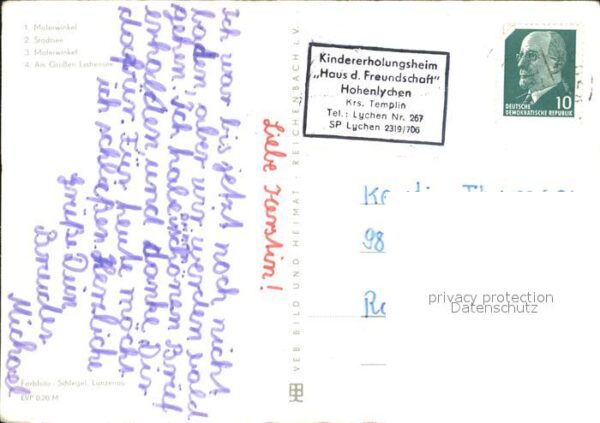 1. Malerwinkel
2. Stadtsee
3. Malerwinkel
4. Am Großen Lychensee
Liebe Kerstin!
Ich war bis jetzt noch nicht
baden, aber wir werden bald
gehen. Ich habe den schönen Brief
erhalden und danke Dir
dafür. Für heute möcht
ich schließen. Herzliche
Grüße Dein
Bruder
Michael
Farbfoto: Schlegel, Lunzenau
EVP 0,20 M
VEB BILD UND HEIMAT · REICHENBACH i. V.
Kindererholungsheim
„Haus d. Freundschaft"
Hohenlychen
Krs. Templin
Tel.: Lychen Nr. 267
SP Lychen 2319/706
10
DEUTSCHE
DEMOKRATISCHE REPUBLIK
98
privacy protection
Datenschutz